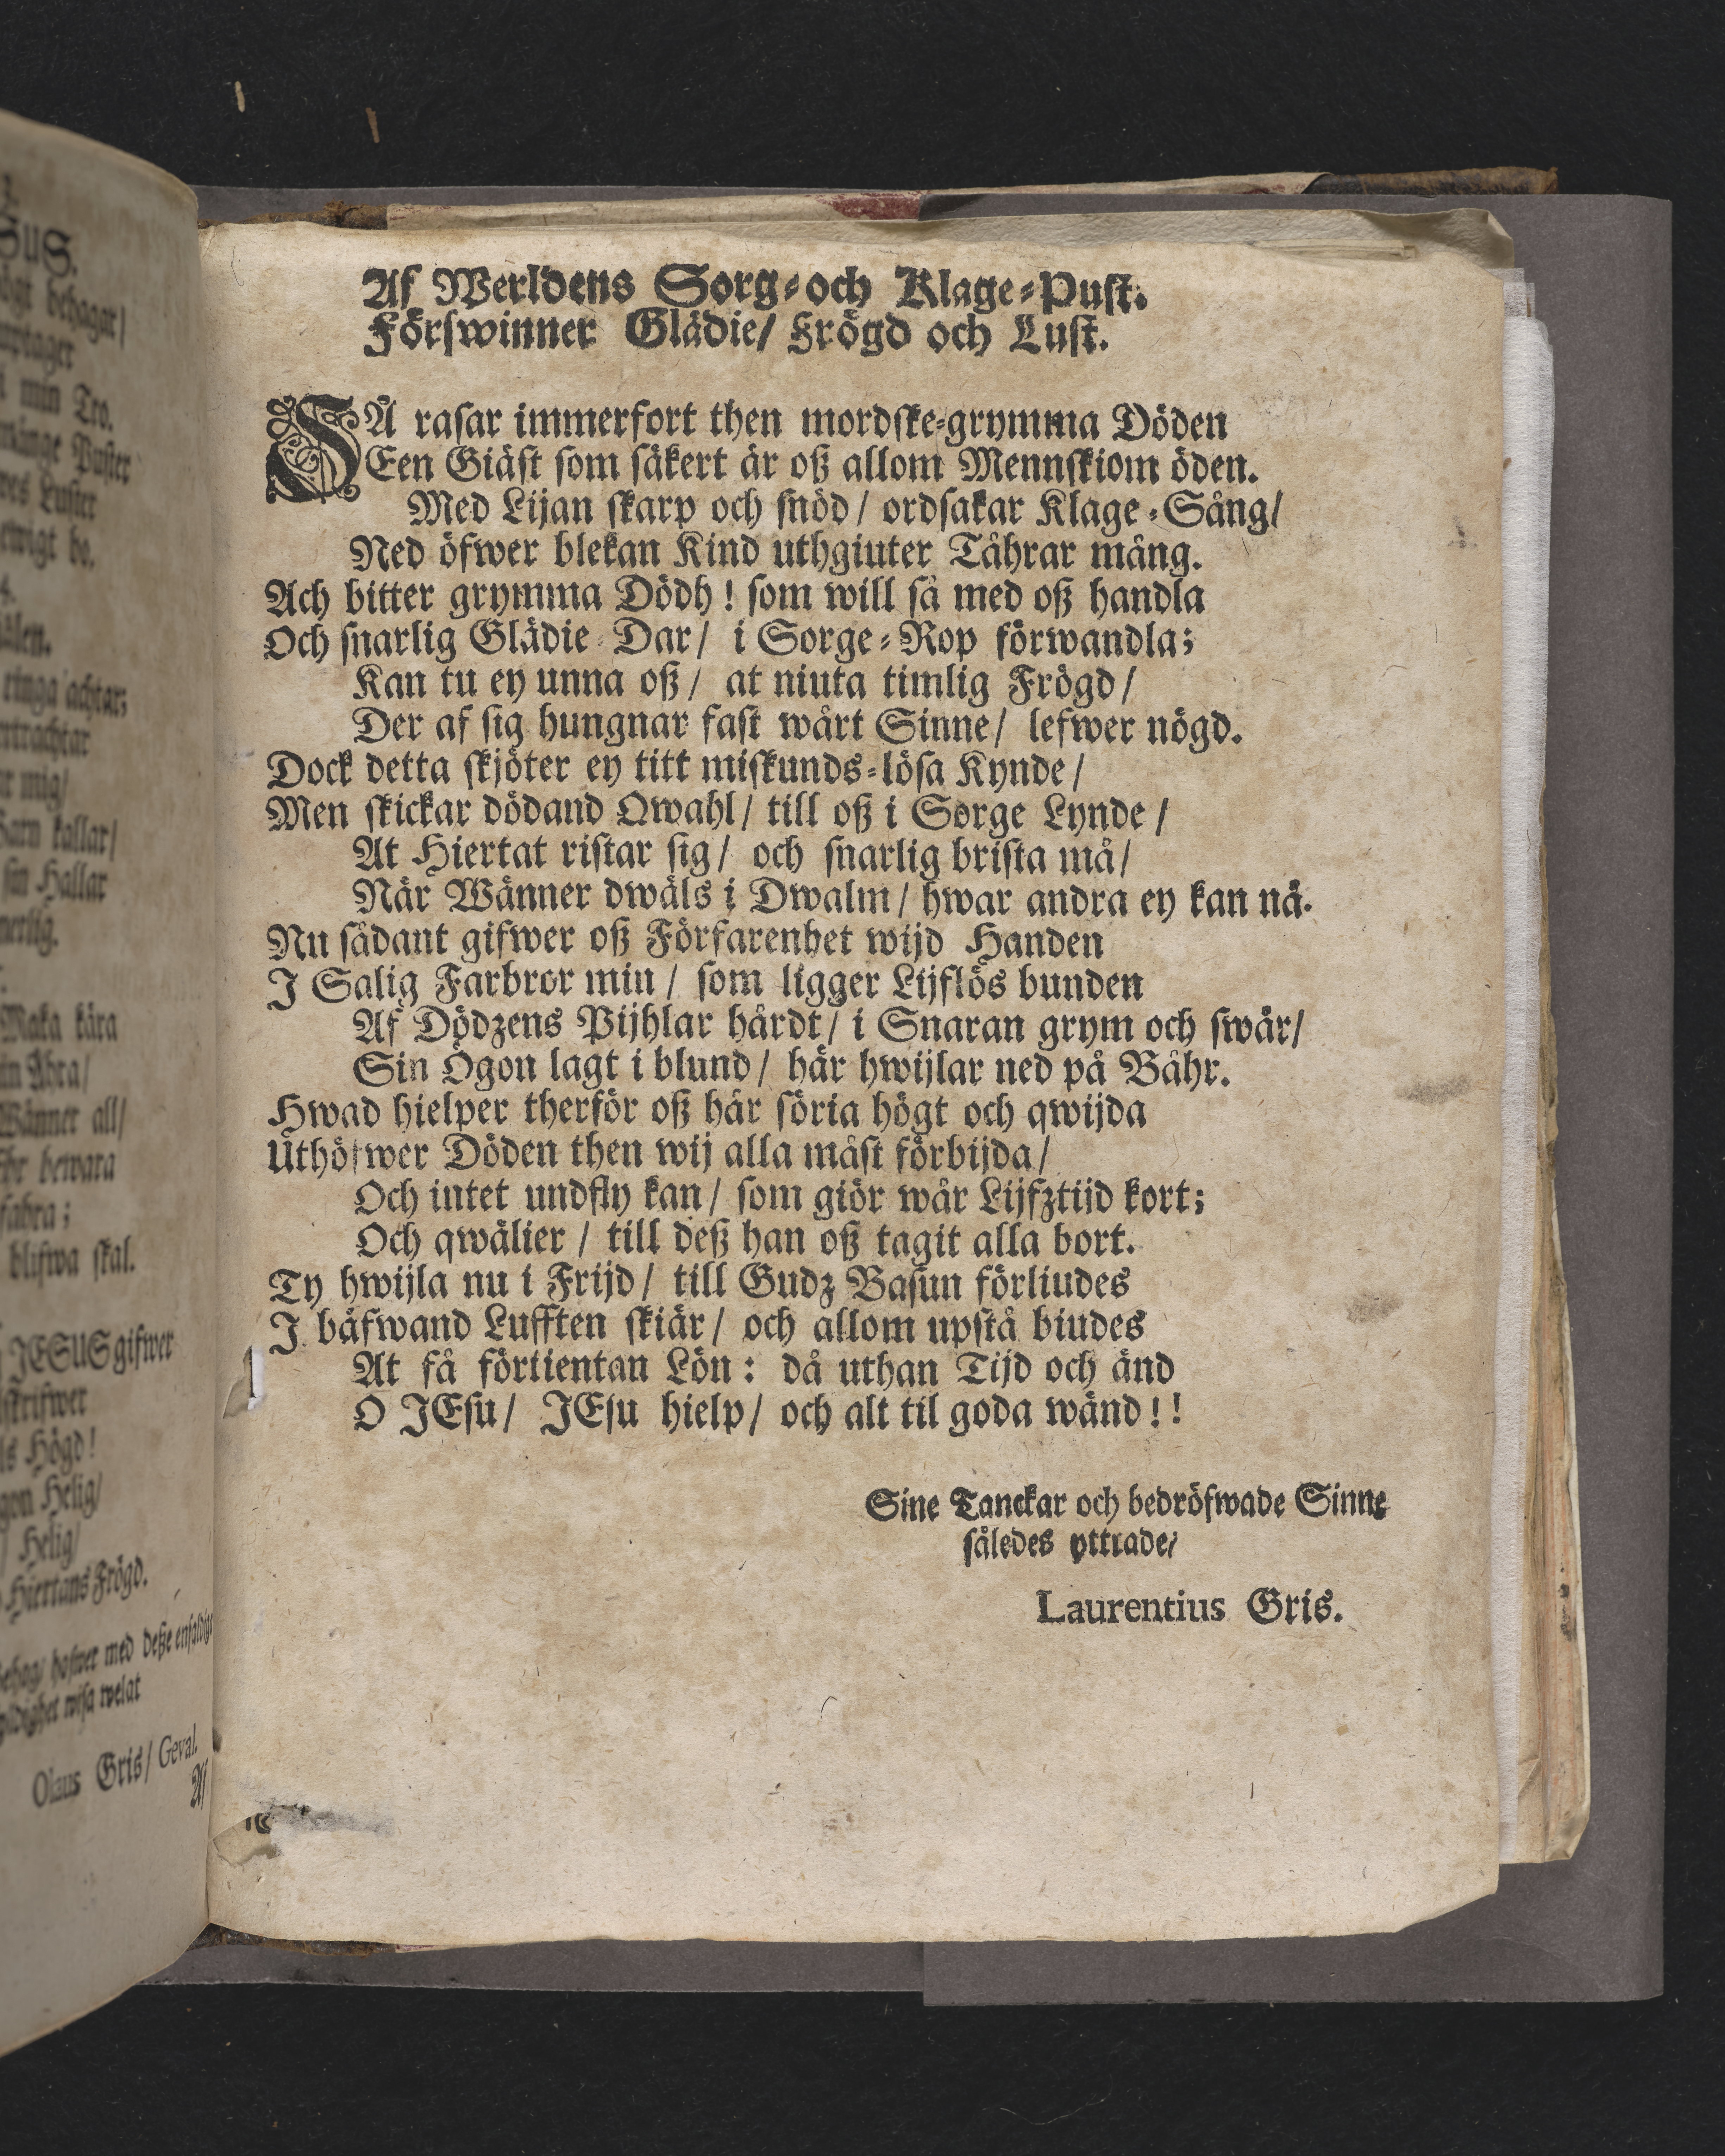 Af Werldens Sorg-och Klage-Pust.
Förswinner Glädie/ Frögd och Lust.
SÅ rasar immerfort then mordske-grymma Döden
Een Giäst som säkert är oß allom Mennskiom öden.
Med Lijan skarp och snöd/ ordsakar Klage-Sång/
Ned öfwer blekan Kind uthgiuter Tåhrar mång.
Ach bitter grymma Dödh! som will så med oß handla
Och snarlig Glädie-Dar/ i Sorge-Rop förwandla;
Kan tu ey unna oß/ at niuta timlig Frögd/
Der af sig hungnar fast wårt Sinne/ lefwer nögd.
Dock detta skjöter ey titt miskunds-lösa Kynde/
Men skickar dödand Qwahl/ till oß i Sorge Lynde/
At Hiertat ristar sig/ och snarlig brista må/
När Wänner dwäls i Dwalm/ hwar andra ey kan nå.
Nu sådant gifwer oß Förfarenhet wijd Handen
I Salig Farbror min/ som ligger Lijflös bunden
Af Dödzens Pijhlar hårdt/ i Snaran grym och swår/
Sin Ögon lagt i blund/ här hwijlar ned på Båhr.
Hwad hielper therför oß här söria högt och qwijda
Uthöfwer Döden then wij alla måst förbijda/
Och intet undfly kan/ som giör wår Lijfztijd kort;
Och qwälier/ till deß han oß tagit alla bort.
Ty hwijla nu i Frijd/ till Gudz Basun förliudes
I bäfwand Lufften skiär/ och allom upstå biudes
At få förtientan Lön: då uthan Tijd och änd
O JEsu/ JEsu hielp/ och alt til goda wänd!!
Sine Tanckar och bedröfwade Sinne
således yttrade/
Laurentius Gris.
behagar/
min Tro.
Puster
Luster
ewigt bo.
ringa achtar;
mig/
kallar/
sin Hallar
Maka kära
Wänner all/
bewara
blifwa skal.
JESUS gifwer
Högd!
Helig/
Helig/
Hiertans Frögd.
med deße enfaldige
wisa welat
Olaus Gris/ Geval.
Af